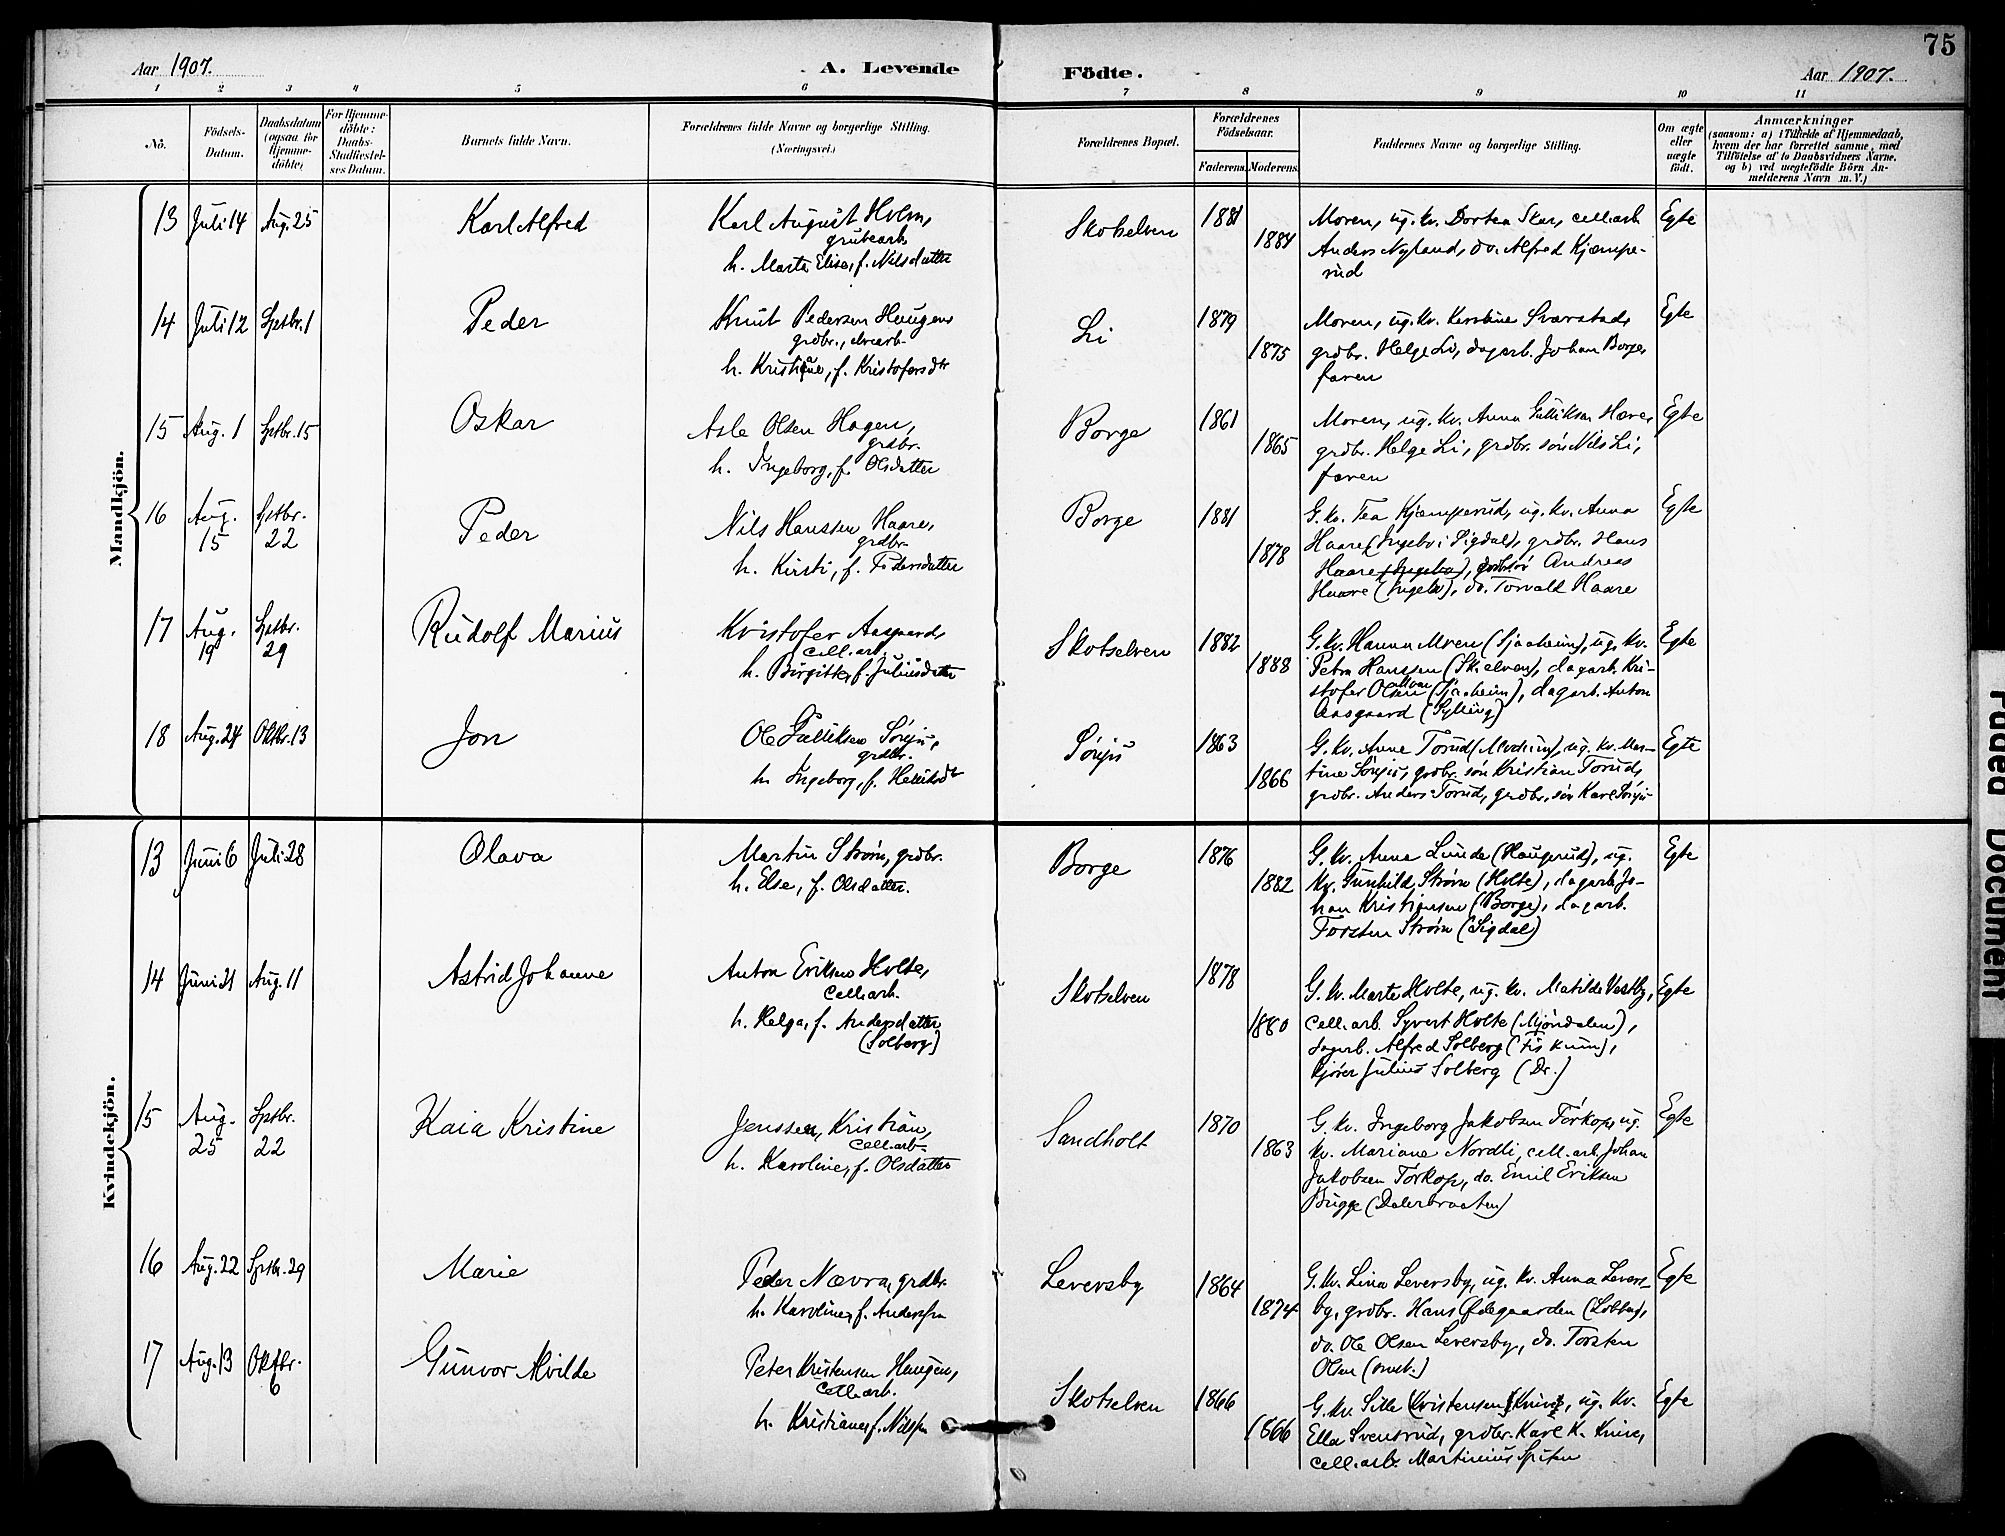 75
Aar 1907.
A. Levende Födte.
Aar 1907.
1 2 3 4 5 6 7 8 9 10 11
No.
Födsels-Datum.
Daabsdatum (ogsaa for Hjemme-döbte)
For Hjemme-döbte: Daabs-Stadfæstel-ses Datum.
Barnets fulde Navn.
Forældrenes fulde Navne og borgerlige Stilling.
(Næringsvei.)
Forældrenes Bopæl.
Forældrenes Födselsaar.
Faderens. Moderens.
Faddernes Navne og borgerlige Stilling.
Om ægte eller uægte födt.
Anmærkninger
(saasom: a) i Tilfælde af Hjemmedaab,
hvem der har forrettet samme, med
Tilföielse af to Daabsvidners Navne,
og b) ved uægtefödte Börn An-
melderens Navn m. V.)
Mandkjön.
13 Juli 14 Aug. 25 Karl Alfred
Karl August Holm,
grubearb.
h. Marte Elise, f. Nilsdatter
Skotselven 1881 1884
Moren, ug. kv. Dortea Skar, cell.arb.
Anders Nyland, do. Alfred Kjæmpe-
rud
Egte
14 Juli 12 Sptbr. 1 Peder
Knut Pedersen Haugen
grdbr.,
h. Kristine, f. Kristofersdtr
Li 1879 1875
Moren, ug. kv. Kerstine Svarstad,
grdbr. Helge Li, dagarb. Johan Borge,
faren
Egte
15 Aug. 1 Sptbr. 15 Oskar
Asle Olsen Hagen,
grdbr.
h. Ingeborg, f. Olsdatter
Borge 1861 1865
Moren, ug. kv. Anna Gulliksen Hære,
grdbr. Helge Li, grdbr. søn Nils Li,
faren
Egte
16 Aug. 15 Sptbr. 22 Peder
Nils Hanssen Haare,
grdbr.
h. Kirsti, f. Pedersdatter
Borge 1881 1878
G. kv. Tea Kjæmperud, ug. kv. Anna
Haare (Ingebo i Sigdal), grdbr. Hans
Haare (Ingebo), Andreas
Haare (Ingebo), do. Torvald Haare
Egte
17 Aug. 19 Sptbr. 29 Rudolf Marius
Kristofer Aasgaard,
cell.arb.
h. Birgitte, f. Juliusdatter
Skotselven 1882 1888
G. kv. Hanna Moen (Sjaaheim), ug. kv.
Petra Hanssen (Sk.elven), dagarb. Kri-
stofer Olsen Moen (Sjaaheim), dagarb. Anton
Aasgaard (Sylling)
Egte
18 Aug. 24 Oktbr. 13 Jon
Ole Gulliksen Sønju,
grdbr.
h. Ingeborg, f. Helliksdtr
Sønju 1863 1866
G. kv. Anne Torud (Modum), ug. kv. Mar-
tine Sønju, grdbr. søn Kristian Torud,
grdbr. Anders Torud, grdbr. søn Karl Sønju
Egte
Kvindekjön.
13 Juni 6 Juli 28 Olava
Martin Strøm, grdbr.
h. Else, f. Olsdatter.
Borge 1876 1882
G. kv. Anna Lunde (Haugerud), ug.
kv. Gunhild Strøm (Holte), dagarb. Jo-
han Kristiansen (Borge), dagarb.
Torsten Strøm (Sigdal)
Egte
14 Juni 21 Aug. 11 Astrid Johanne
Anton Eriksen Holte,
cell.arb.
h. Helga, f. Andersdatter
(Solberg)
Skotselven 1878 1880
G. kv. Marte Holte, ug. kv. Matilde Vestby,
cell.arb. Syvert Holte (Mjöndalen),
dagarb. Alfred Solberg (Fiskum),
kjører Julius Solberg (Dr.)
Egte
15 Aug. 25 Sptbr. 22 Kaia Kristine
Jenssen, Kristian,
cell.arb.
h. Karoline, f. Olsdatter
Sandholt 1870 1863
G. kv. Ingeborg Jakobsen Torkop, ug.
kv. Mariane Nordli, cell.arb. Johan
Jakobsen Torkop, do. Emil Eriksen
Brügge (Dalerbraaten)
Egte
16 Aug. 22 Sptbr. 29 Marie
Peder Nævra, grdbr.
h. Karoline, f. Andersdtr
Leversby 1864 1874
G. kv. Lina Leversby, ug. kv. Anna Levers-
by, grdbr. Hans Ødegaarden (Lobben),
do. Ole Olsen Leversby, do. Torsten
Olsen
Egte
17 Aug. 13 Oktbr. 6 Gunvor Alvilde
Peter Kristensen Haugen,
cell.arb.
h. Kristiane, f. Nilsdtr
Skotselven 1866 1866
G. kv. Sille Kristensen Knive, ug. kv.
Ella Svensrud, grdbr. Karl K. Knive,
cell.arb. Martinius Spiten
Egte
Faded Document